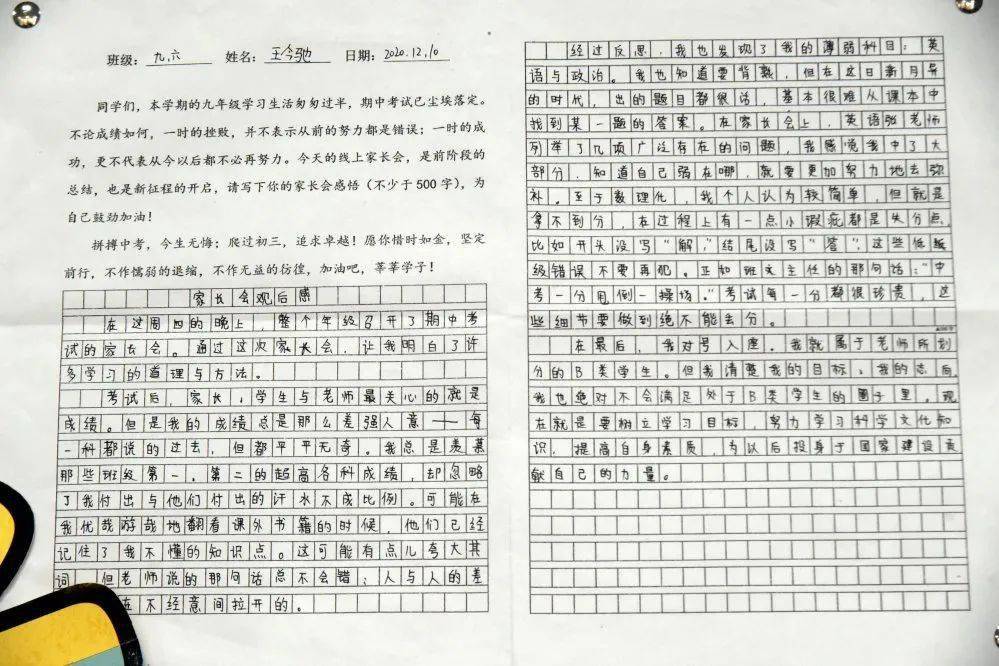 班级：九.六 姓名：王今驰 日期：2020.12.10
同学们，本学期的九年级学习生活匆匆过半，期中考试已尘埃落定。
不论成绩如何，一时的挫败，并不表示从前的努力都是错误；一时的成
功，更不代表从今以后都不必再努力。今天的线上家长会，是前阶段的
总结，也是新征程的开启，请写下你的家长会感悟（不少于 500 字），为
自己鼓劲加油！
拼搏中考，今生无悔；爬过初三，追求卓越！愿你惜时如金，坚定
前行，不作懦弱的退缩，不作无益的彷徨，加油吧，莘莘学子！
家长会观后感
在这周四的晚上，整个年级召开了期中考
试的家长会。通过这次家长会，让我明白了许
多学习的道理与方法。
考试后，家长，学生与老师最关心的就是
成绩。但是我的成绩总是那么差强人意——每
一科都说的过去，但都平平无奇。我总是羡慕
那些班级第一，第二的超高各科成绩，却忽略
了我付出与他们付出的汗水不成比例。可能在
我优哉游哉地翻看课外书籍的时候，他们已经
记住了我不懂的知识点。这可能有点儿夸大其
词，但老师说的那句话总不会错：人与人的差
在不经意间拉开的。
经过反思，我也发现了我的薄弱科目：英
语与政治。我也知道要背熟，但在这日新月异
的时代，出的题目都很活，基本很难从课本中
找到某一题的答案。在家长会上，英语张老师
列举了几项广泛存在的问题，我感觉我中了大
部分，知道自己弱在哪，就要更加努力地去弥
补。至于数理化，我个人认为较简单，但就是
拿不到分，在过程上有一点小瑕疵都是失分点，
比如开头没写“解，”结尾没写“答”，这些低级
级错误不要再犯。正如班文主任的那句话：“中
考一分甩倒一操场。”考试每一分都很珍贵，这
些细节要做到绝不能丢分。
在最后，我对号入座。我就属于老师所划
分的B类学生。但我清楚我的目标，我的志向，
我也绝对不会满足处于B类学生的圈子里。现
在就是要树立学习目标，努力学习科学文化知
识，提高自身素质，为以后投身于国家建设贡
献自己的力量。